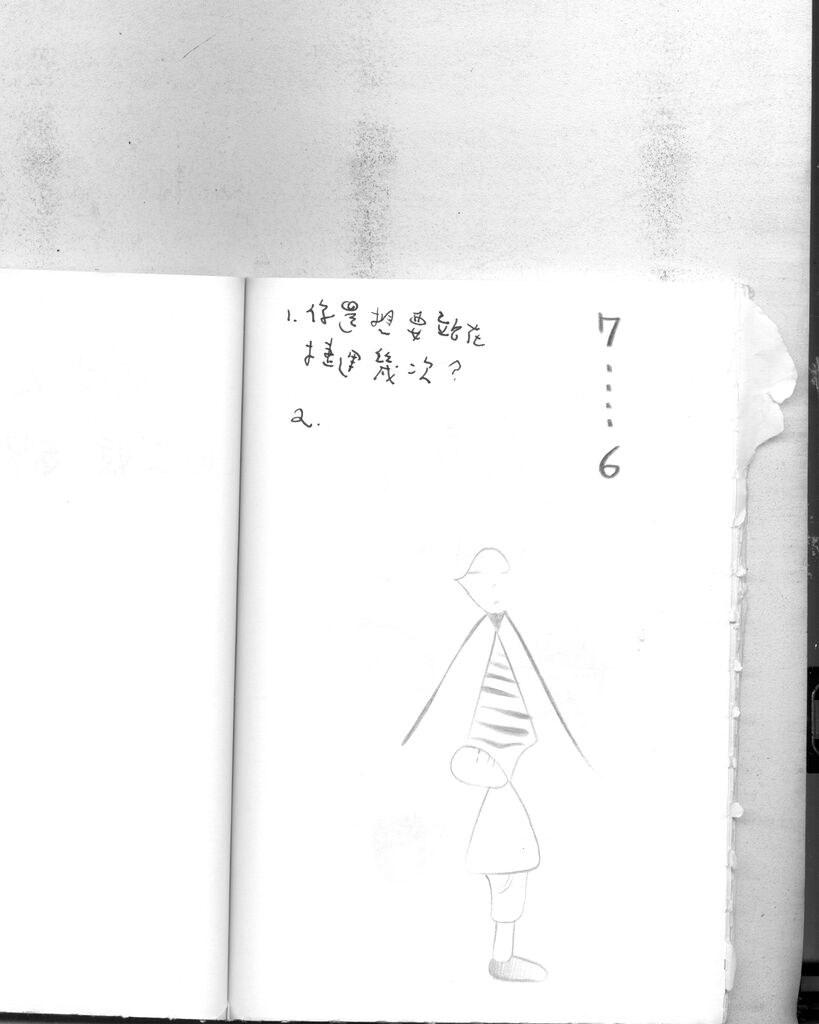 1. 你還想要站在
捷運幾次?
2.
7
6